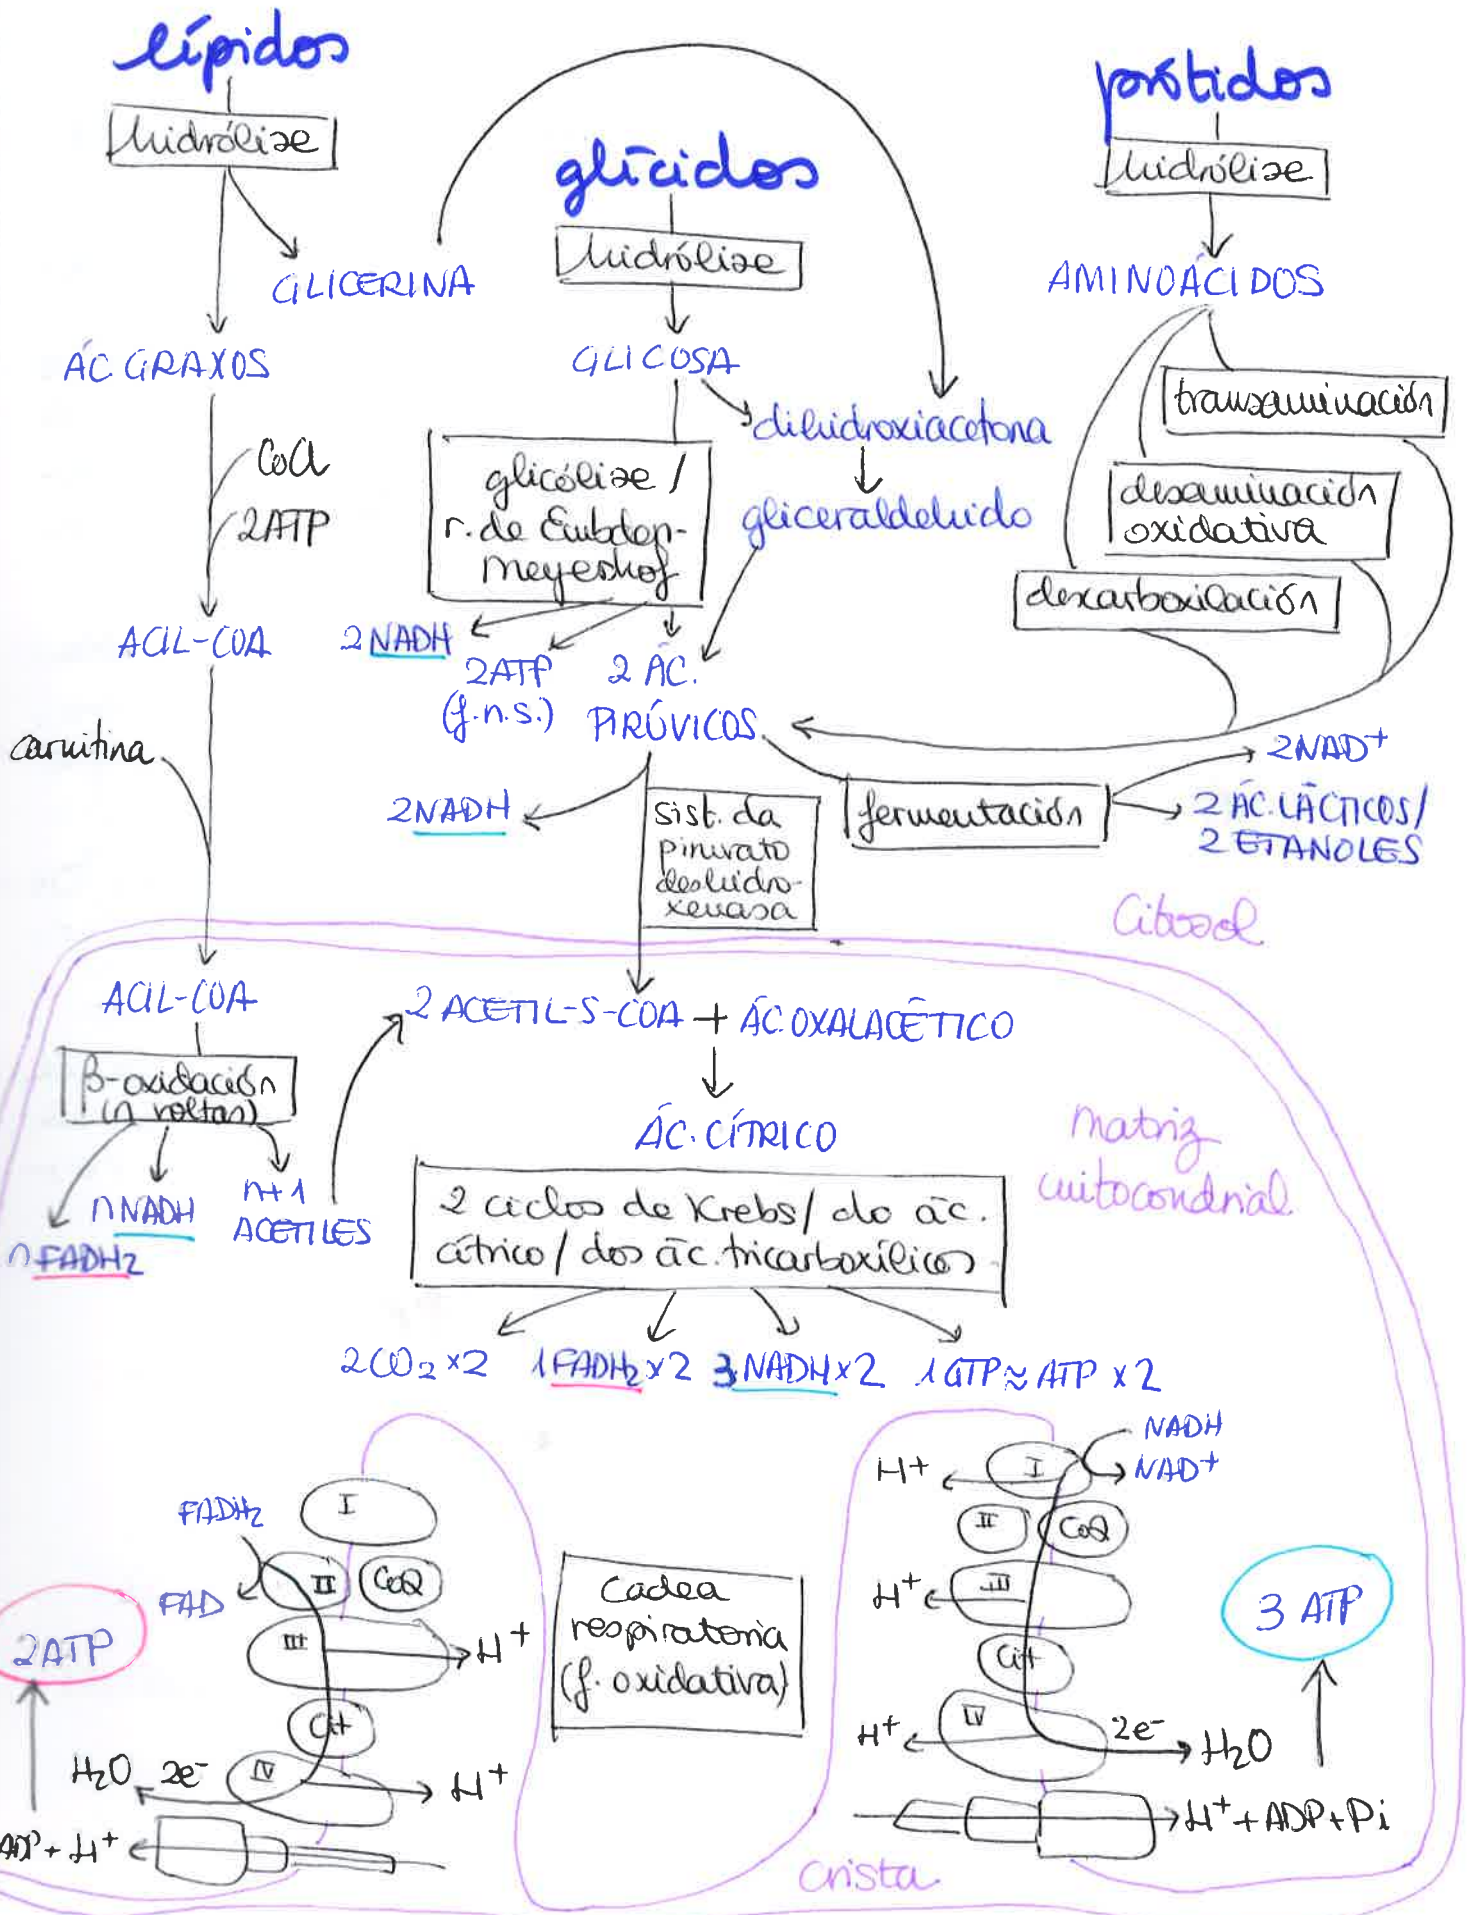 lípidos
hidrólise
GLICERINA
ÁC GRAXOS
CoA
2ATP
ACIL-COA
carnitina
glícidos
hidrólise
GLICOSA
dihidroxiacetona
gliceraldehido
glicólise /
r. de Embden-
Meyerhof
2 NADH
2ATP
(f.n.s.)
2 ÁC.
PIRÚVICOS
prótidos
hidrólise
AMINOÁCIDOS
transaminación
desaminación
oxidativa
descarboxilación
2NADH
sist. da
piruvato
deshidro-
xenasa
fermentación
2NAD+
2 ÁC. LÁCTICOS/
2 ETANOLES
Citosol
ACIL-COA
β-oxidación
(n voltas)
n FADH2
n NADH
n+1
ACETILES
2 ACETIL-S-COA + ÁC. OXALACÉTICO
ÁC. CÍTRICO
matriz
mitocondrial
2 ciclos de Krebs/ do ác.
cítrico / dos ác. tricarboxílicos
2CO2 x2
1 FADH2 x2
3 NADH x2
1 GTP ≈ ATP x2
FADH2
FAD
I
II
CoQ
III
H+
Cit
IV
H+
H2O 2e-
2ATP
ADP + H+
Cadea
respiratoria
(f. oxidativa)
NADH
NAD+
H+
I
II
CoQ
H+
III
Cit
H+
IV
2e- H2O
3 ATP
H+ + ADP + Pi
Crista